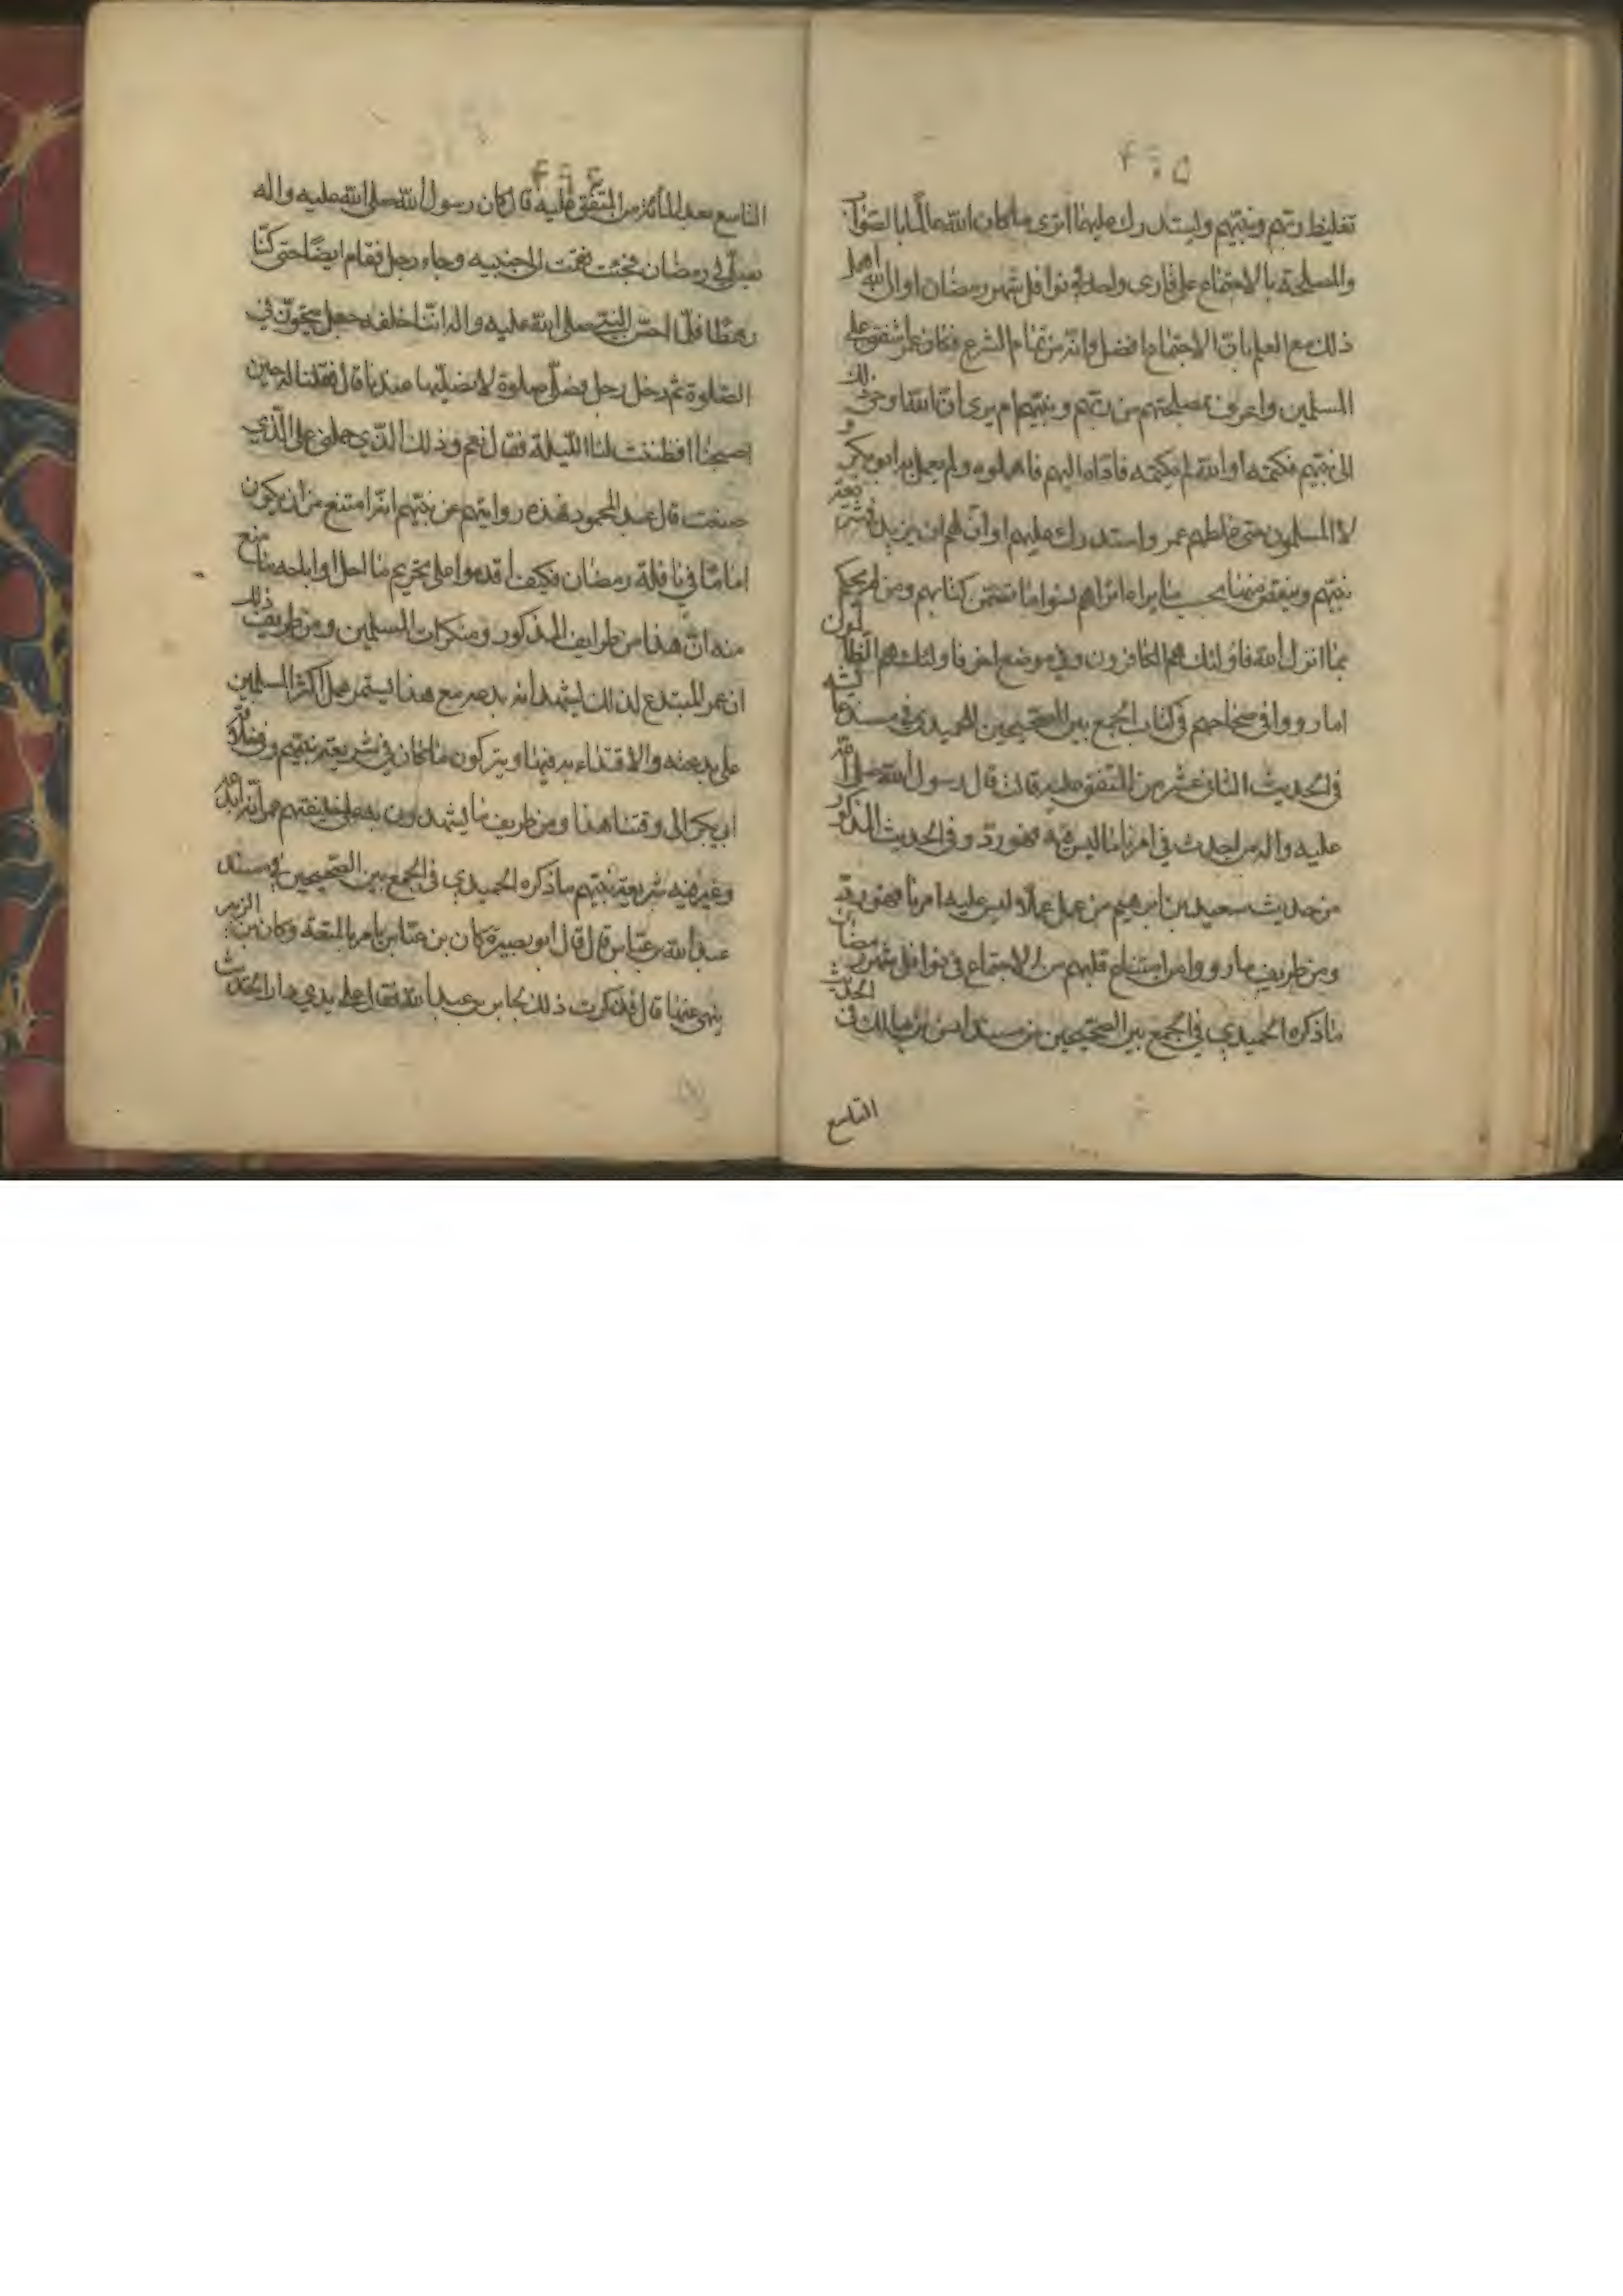 تغليظ ربهم ونبيهم وليستدرك عليهما اترى ما كان الله عالما بالصواب
والمصلحة بالاجتماع على قارى واحد في نوافل شهر رمضان او ان الله اهمل
ذلك مع العلم بان الاجتماع افضل وانه من تمام الشرع فكان عمر اشفق على
المسلمين واعرف بمصلحتهم من ربهم ونبيهم ام يرى ان الله اوحى ذلك
الى نبيهم فكتمه او انه لم يكتمه فاداه اليهم فاهملوه ولم يعمل به ابو بكر و
لا المسلمون حتى غلطهم عمر واستدرك عليهم او ان لهم ان يزيد في شريعة
نبيهم وينقص منها بحسب ما يراه اتراهم نسوا ما تضمن كتابهم ومن لم يحكم
بما انزل الله فاولئك هم الكافرون وفي موضع اخر فاولئك هم الظالمون
اما رووا في صحاحهم في كتاب الجمع بين الصحيحين للحميدي في مسند عايشه
في الحديث الثانى عشر من المتفق عليه قالت قال رسول الله صلى الله
عليه واله من احدث في امرنا ما ليس منه فهو رد وفي الحديث المذكور
من حديث سعيد بن ابرهيم من عمل عملا ليس عليه امرنا فهو رد
ومن طريف ما رووا من امتناع نبيهم من الاجتماع في نوافل شهر رمضان
ما ذكره الحميدي في الجمع بين الصحيحين من مسند انس بن مالك في الحديث
التاسع
التاسع بعد المائة من المتفق عليه قال كان رسول الله صلى الله عليه واله
يصلي في رمضان فجئت فقمت الى جنبه وجاء رجل فقام ايضا حتى كنا
رهطا فلما احس النبي صلى الله عليه واله اننا خلفه جعل يتجوز في
الصلوة ثم دخل رحله فصلى صلوة لا يصليها عندنا قال فقلنا له حين
اصبحنا افطنت لنا الليلة فقال نعم وذلك الذي حملني على الذي
صنعت قال عبد المحمود فهذه روايتهم عن نبيهم انه امتنع من ان يكون
اماما في نافلة رمضان فكيف اقدموا على تحريم ما احل او اباحه ما منع
منه ان هذا من طرايف المذكور ومنكرات المسلمين ومن طريف ذلك
ان عمر المبتدع لذلك يشهد انه بدعة مع هذا يستمر عمل اكثر المسلمين
على بدعته والاقتداء به فيها ويتركون ما كان في شريعة نبيهم و
ابي بكر الى وقتنا هذا ومن طريف ما يشهدون به على خليفتهم عمر انه
وغير فيه شريعة نبيهم ما ذكره الحميدي في الجمع بين الصحيحين في مسند
عبد الله بن عباس قال قال ابو بصيرة كان بن عباس يامر بالمتعة وكان بن الزبير
ينهى عنها قال فذكرت ذلك لجابر بن عبد الله فقال على يدي دار الحديث